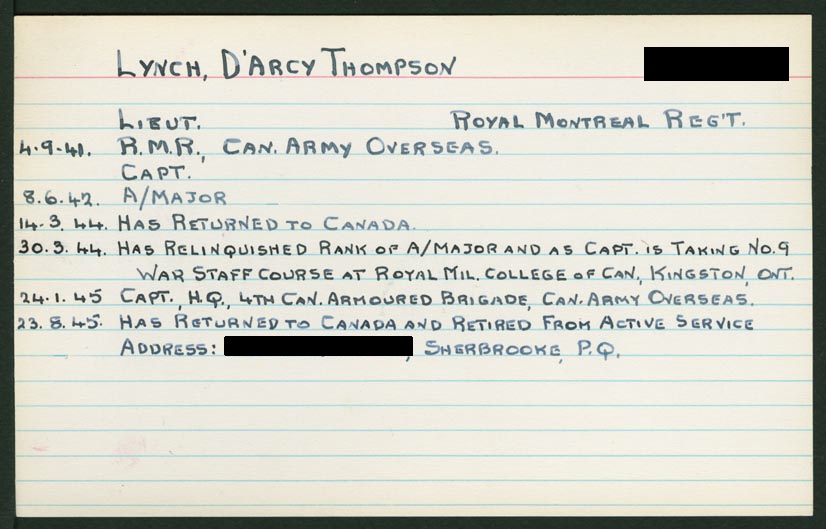 LYNCH, D'ARCY THOMPSON
LIEUT. ROYAL MONTREAL REG'T.
4.9.41. R.M.R., CAN. ARMY OVERSEAS.
CAPT.
8.6.42. A/MAJOR
14.3.44. HAS RETURNED TO CANADA.
30.3.44. HAS RELINQUISHED RANK OF A/MAJOR AND AS CAPT. IS TAKING NO.9
WAR STAFF COURSE AT ROYAL MIL. COLLEGE OF CAN, KINGSTON, ONT.
24.1.45 CAPT., H.Q., 4TH CAN. ARMOURED BRIGADE, CAN. ARMY OVERSEAS.
23.8.45. HAS RETURNED TO CANADA AND RETIRED FROM ACTIVE SERVICE
ADDRESS: , SHERBROOKE, P.Q.